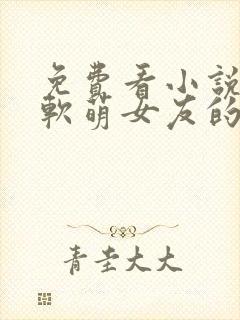 免費看小說
軟萌女友的
青圭大大